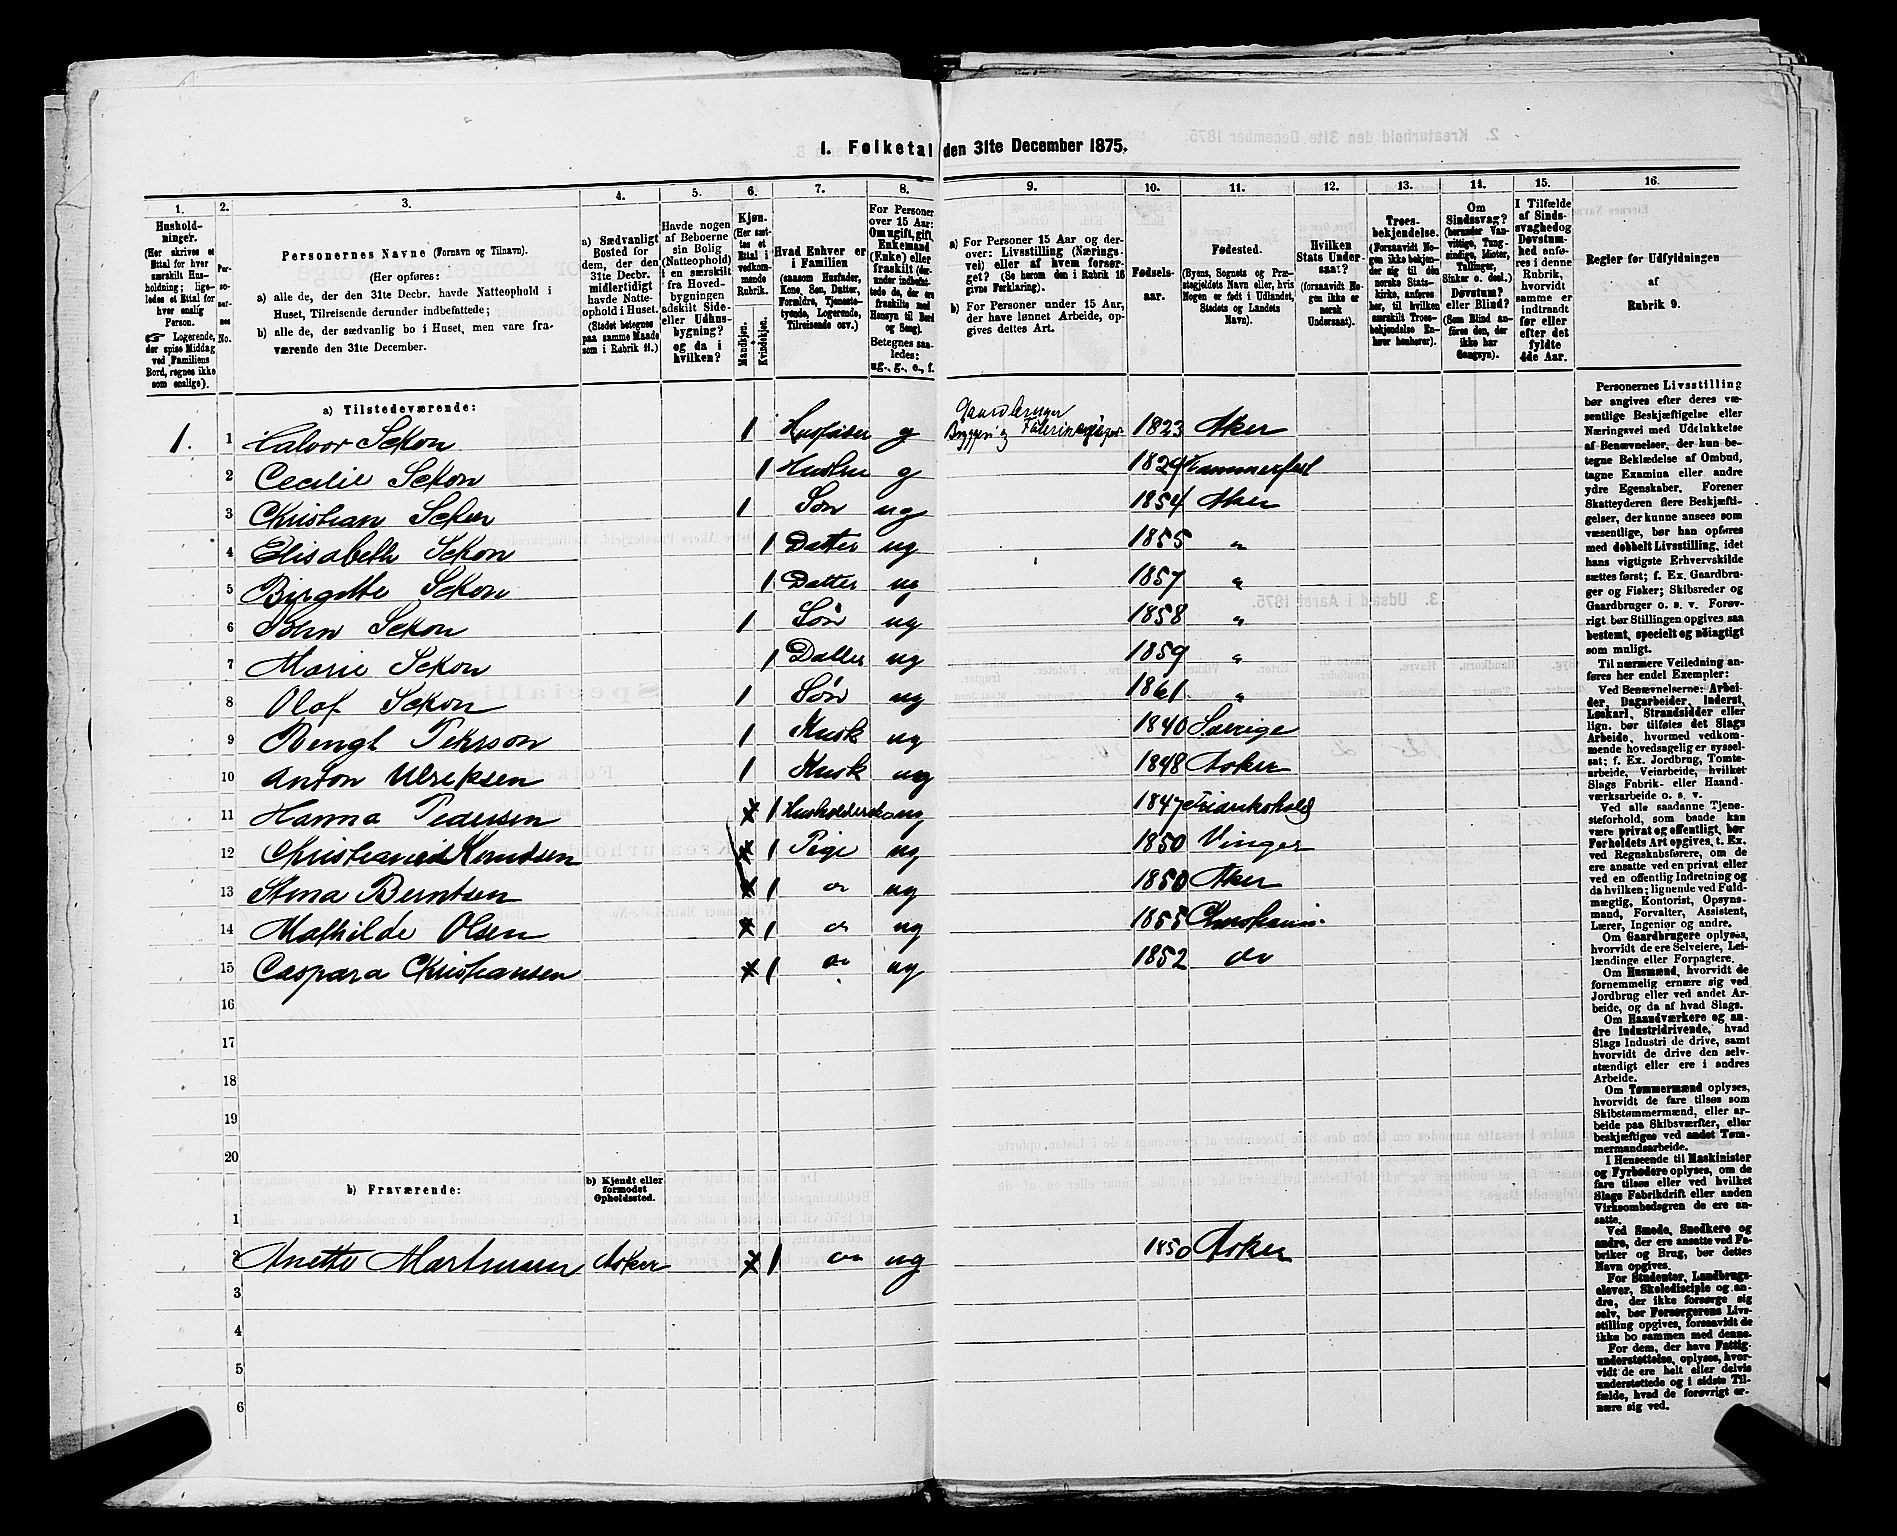 1. Folketal den 31te December 1875.
1. 2. 3. 4. 5. 6. 7. 8. 9. 10. 11. 12. 13. 14. 15. 16.
Hushold-
ninger.
(Her skrives et
Ettal for hver
særskilt Hus-
holdning; lige-
ledes et Ettal for
hver enslig
Person.
☞ Logerende,
der spise Middag
ved Familiens
Bord, regnes ikke
som enslige).
Per-
soner-
nes
No.
Personernes Navne (Fornavn og Tilnavn).
(Her opføres:
a) alle de, der den 31te Decbr. havde Natteophold i
Huset, Tilreisende derunder indbefattede;
b) alle de, der sædvanlig bo i Huset, men vare fra-
værende den 31te December.
a) Sædvanligt
Bosted for
dem, der den
31te Decbr.
midlertidigt
havde Natte-
ophold i Huset.
(Stedet betegnes
paa samme Maade
som i Rubrik 11.)
Havde nogen
af Beboerne
sin Bolig
(Natteophold)
i en særskilt
fra Hoved-
bygningen
adskilt Side-
eller Udhus-
bygning?
og da i
hvilken?
Kjøn.
(Her sæt-
tes et
Ettal i
vedkom-
mende
Rubrik.
Mandkjøn.
Kvindekjøn.
Hvad Enhver er
i Familien
(saasom Husfader,
Kone, Søn, Datter,
Forældre, Tjeneste-
tyende, Logerende,
Tilreisende osv.)
For Personer
over 15 Aar:
Om ugift, gift,
Enkemand
(Enke) eller
fraskilt (der-
under indbefat-
tede de, der ere
fraskilte med
Hensyn til Bord
og Seng).
Betegnes saa-
ledes:
ug., g., e., f.
a) For Personer 15 Aar og der-
over: Livsstilling (Nærings-
vei) eller af hvem forsør-
get? (Se herom den i Rubrik 16
givne Forklaring).
b) For Personer under 15 Aar,
der have lønnet Arbeide, op-
gives dettes Art.
Fødsels-
aar.
Fødested.
(Byens, Sognets og Præ-
stegjeldets Navn eller, hvis
Nogen er født i Udlandet,
Stedets og Landets
Navn).
Hvilken
Stats Under-
saat?
(forsaavidt No-
gen ikke er
norsk
Undersaat).
Troes-
bekjendelse.
(Forsaavidt No-
gen ikke bekjen-
der sig til den
norske Stats-
kirke, anføres
her, til hvilken
særskilt Troes-
bekjendelse En-
hver henhører).
Om
Sindssvag?
(herunder Van-
vittige, Tung-
sindige, Idioter,
Tullinger,
Sinker o. desl.).
Døvstum?
eller Blind?
(Som Blind an-
føres den, der
ikke har
Gangsyn).
I Tilfælde
af Sinds-
svaghed og
Døvstum-
hed anfø-
res i denne
Rubrik,
hvorvidt
samme er
indtraadt
før eller
efter det
fyldte
4de Aar.
Regler for Udfyldningen
af
Rubrik 9.
a) Tilstedeværende:
1. 1 Halvor Schou 1 Husfader g Gaardbruger 1823 Aker
2 Cecilie Schou 1 Hustru g 1829 Hammerfest
3 Christian Schou 1 Søn ug 1854 Aker
4 Elisabeth Schou 1 Datter ug 1855 "
5 Birgitte Schou 1 Datter ug 1857 "
6 John Schou 1 Søn ug 1858 "
7 Marie Schou 1 Datter ug 1859 "
8 Olaf Schou 1 Søn ug 1861 "
9 Bengt Peterson 1 Kusk ug 1840 Sverige
10 Anton Ulriksen 1 Kusk ug 1848 Asker
11 Hanna Pedersen 1 ug 1847
12 Knudsen 1 Pige ug 1850 Vinger
13 Stina Berntsen 1 do ug 1850 Aker
14 Mathilde Olsen 1 do ug 1855 Christiania
15 Caspara Christiansen 1 do ug 1852 do
16
17
18
19
20
b) Fraværende:
b) Kjendt eller
formodet
Opholdssted.
1
2 Anette Martinsen Asker 1 do ug 1850 Asker
3
4
5
6
Personernes Livsstilling
bør angives efter deres væ-
sentlige Beskjæftigelse eller
Næringsvei med Udelukkelse
af Benævnelser, der kun be-
tegne Beklædelse af Ombud,
tagne Examina eller andre
ydre Egenskaber. Forener
Skatteyderen flere Beskjæfti-
gelser, der kunne ansees som
væsentlige, bør han opføres
med dobbelt Livsstilling, idet
hans vigtigste Erhvervskilde
sættes først; f. Ex. Gaardbru-
ger og Fisker; Skibsreder og
Gaardbruger o. s. v. Forøv-
rigt bør Stillingen opgives saa
bestemt, specielt og nøiagtigt
som muligt.
Til nærmere Veiledning an-
føres her endel Exempler:
Ved Benævnelserne: Arbei-
der, Dagarbeider, Inderst,
Løskarl, Strandsidder eller
lign. bør tilføies det Slags
Arbeide, hvormed vedkom-
mende hovedsagelig er syssel-
sat; f. Ex. Jordbrug, Tomte-
arbeide, Veiarbeide, hvilket
Slags Fabrik- eller Haand-
værksarbeide o. s. v.
Ved alle saadanne Tjene-
steforhold, som baade kan
være privat og offentligt, bør
Forholdets Art opgives, t. Ex.
ved Regnskabsførere, om de
ere ansatte ved en privat eller
ved en offentlig Indretning og
da hvilken; lignende ved Fuld-
mægtig, Kontorist, Opsyns-
mand, Forvalter, Assistent,
Lærer, Ingeniør og andre.
Om Gaardbrugere oplyses,
hvorvidt de ere Selveiere, Lei-
lændinge eller Forpagtere.
Om Husmænd, hvorvidt de
fornemmelig ernære sig ved
Jordbrug eller ved andet Ar-
beide, og da af hvad Slags.
Om Haandværkere og an-
dre Industridrivende, hvad
Slags Industri de drive, samt
hvorvidt de drive den selv-
stændigt eller ere i andres
Arbeide.
Om Tømmermænd oplyses,
hvorvidt de fare tilsøs som
Skibstømmermænd, eller ar-
beide paa Skibsværfter, eller
beskjæftiges ved andet Tøm-
mermandsarbeide.
I Henseende til Maskinister
og Fyrbødere oplyses, om de
fare tilsøs eller ved hvilket
Slags Fabrikdrift eller anden
Virksomhedsgren de ere an-
satte.
Ved Smede, Snedkere og
andre, der ere ansatte ved Fa-
briker og Brug, bør dettes
Navn opgives.
For Studenter, Landbrugs-
elever, Skoledisciple og an-
dre, der ikke forsørge sig
selv, bør Forsørgerens Livs-
stilling opgives, forsaavidt de
ikke bo sammen med denne.
For dem, der have Fattig-
understøttelse, oplyses, hvor-
vidt de ere helt eller delvis
understøttede og i sidste Til-
fælde, hvad de forøvrigt er-
nære sig ved.